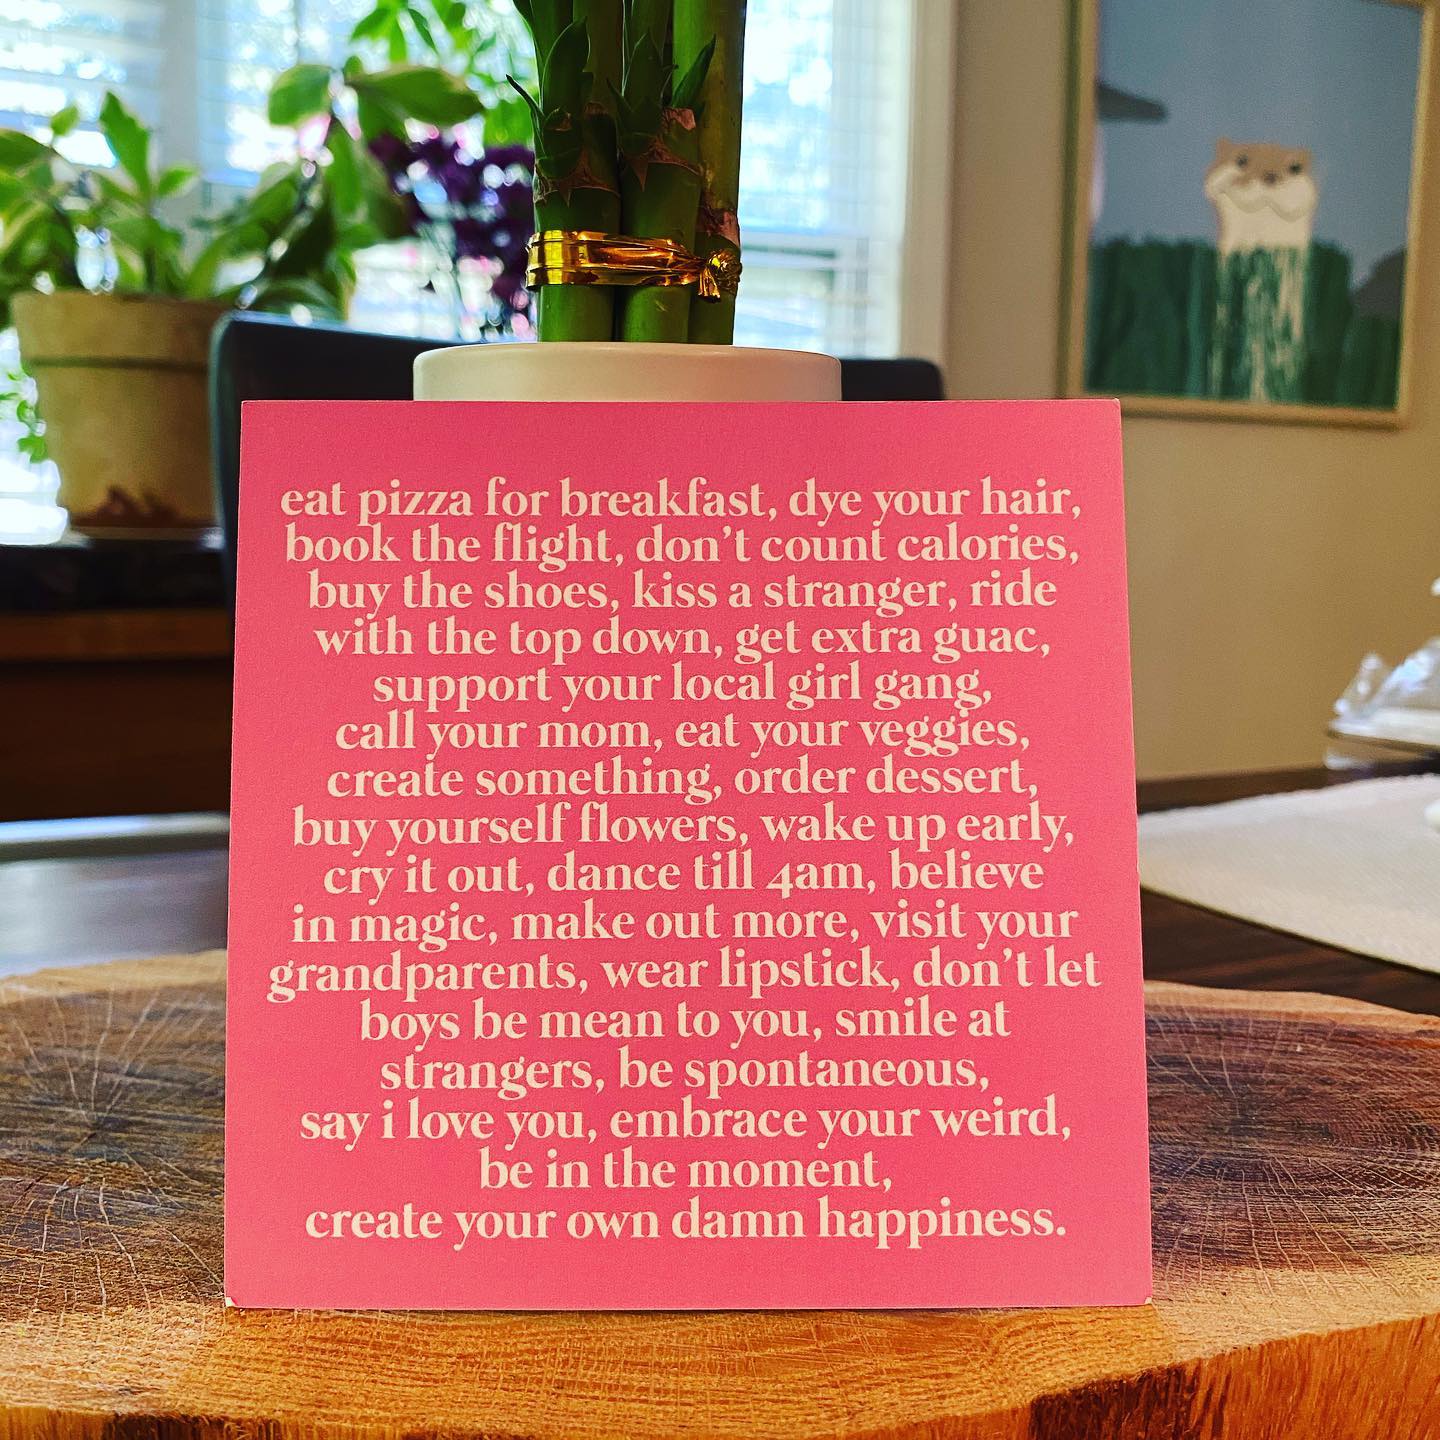 eat pizza for breakfast, dye your hair,
book the flight, don't count calories,
buy the shoes, kiss a stranger, ride
with the top down, get extra guac,
support your local girl gang,
call your mom, eat your veggies,
create something, order dessert,
buy yourself flowers, wake up early,
cry it out, dance till 4am, believe
in magic, make out more, visit your
grandparents, wear lipstick, don't let
boys be mean to you, smile at
strangers, be spontaneous,
say i love you, embrace your weird,
be in the moment,
create your own damn happiness.